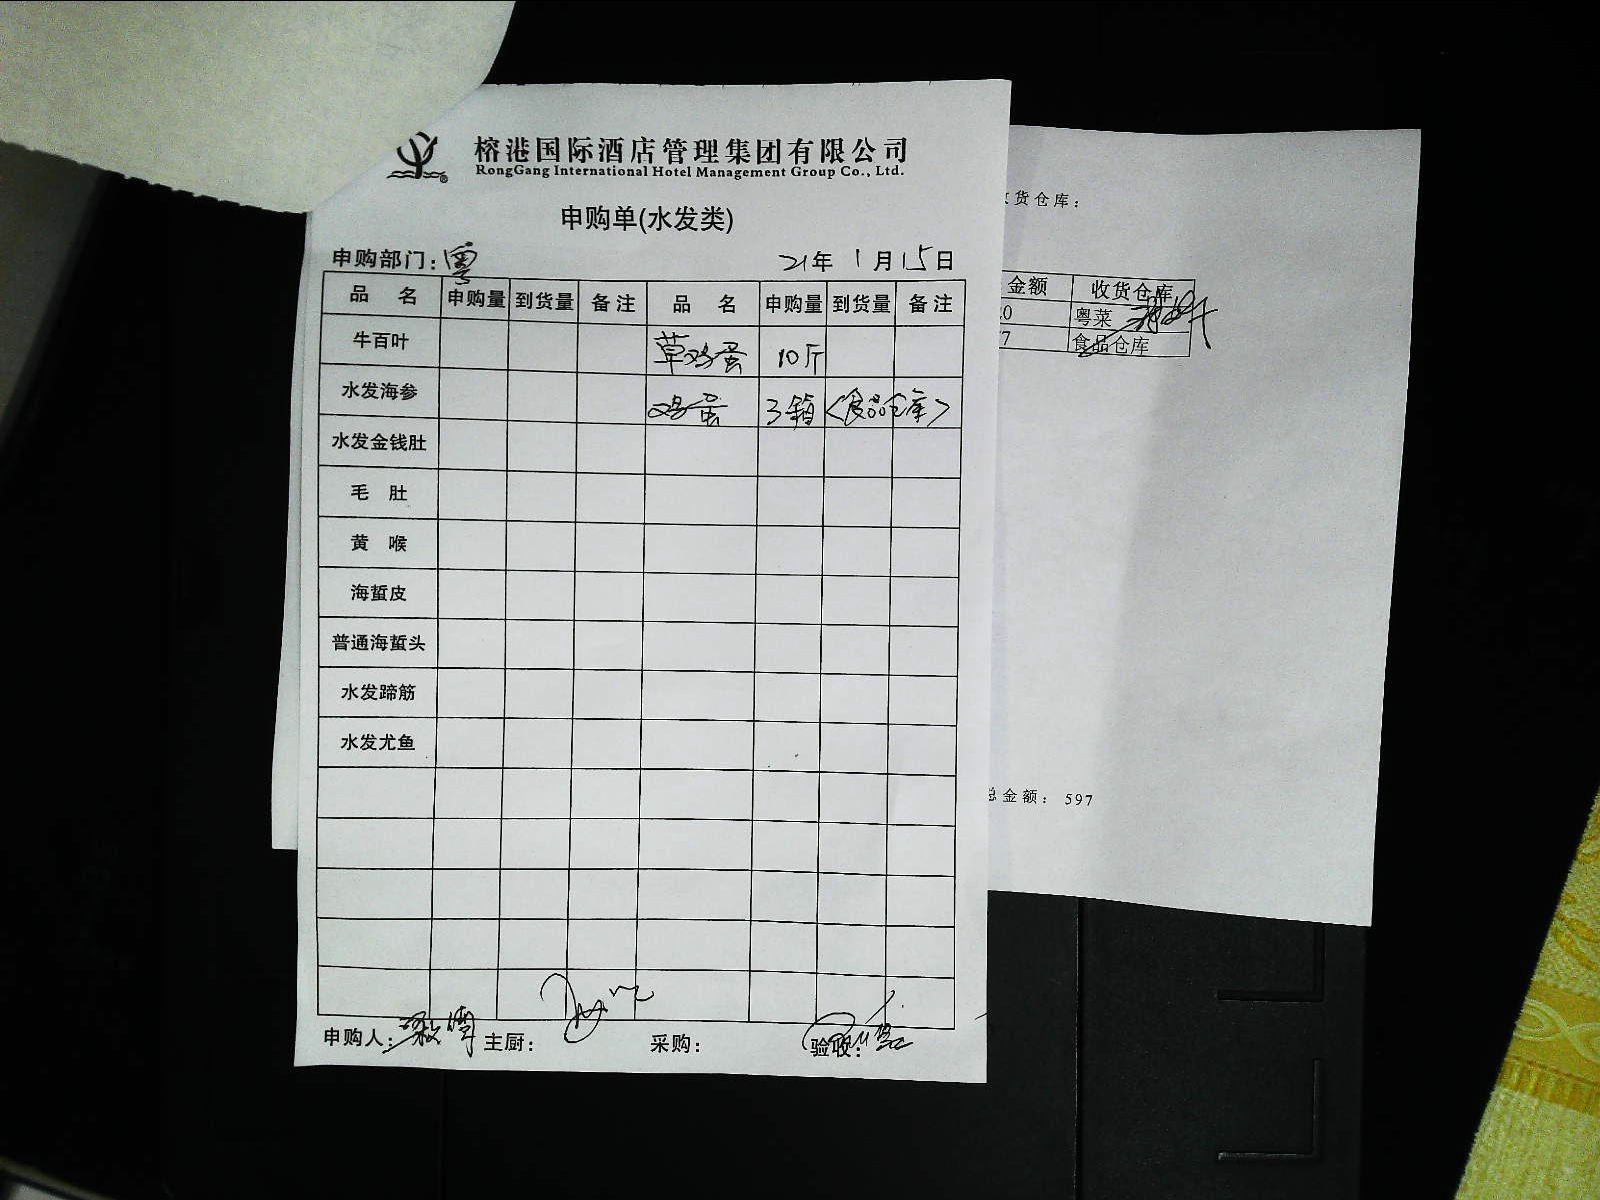 榕港国际酒店管理集团有限公司
RongGang International Hotel Management Group Co., Ltd.
申购单(水发类)
申购部门：粤 21年 1月15日
品 名 申购量 到货量 备注 品 名 申购量 到货量 备注
牛百叶 草鸡蛋 10斤
水发海参 鸡蛋 3箱 <食品仓库>
水发金钱肚
毛 肚
黄 喉
海蜇皮
普通海蜇头
水发蹄筋
水发尤鱼
申购人： 主厨： 采购： 验收：
货仓库：
金额 收货仓库
0 粤菜
7 食品仓库
总金额： 597